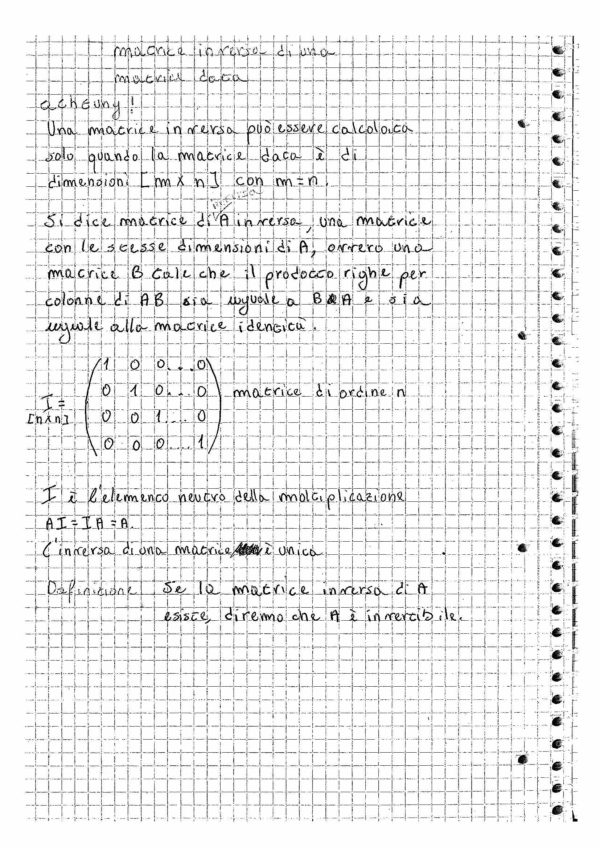 matrice inversa di una
matrice data
achtung!
Una matrice inversa può essere calcolata
solo quando la matrice data è di
dimensioni [m x n] con m=n.
Si dice matrice di A inversa, una matrice
con le stesse dimensioni di A, ovvero una
matrice B tale che il prodotto righe per
colonne di AB sia uguale a BA e sia
uguale alla matrice identità.
I = [n x n] (1 0 0...0
0 1 0...0 matrice di ordine n
0 0 1...0
0 0 0...1)
I è l'elemento neutro della moltiplicazione
AI = IA = A.
L'inversa di una matrice è unica
Definizione Se la matrice inversa di A
esiste, diremo che A è invertibile.